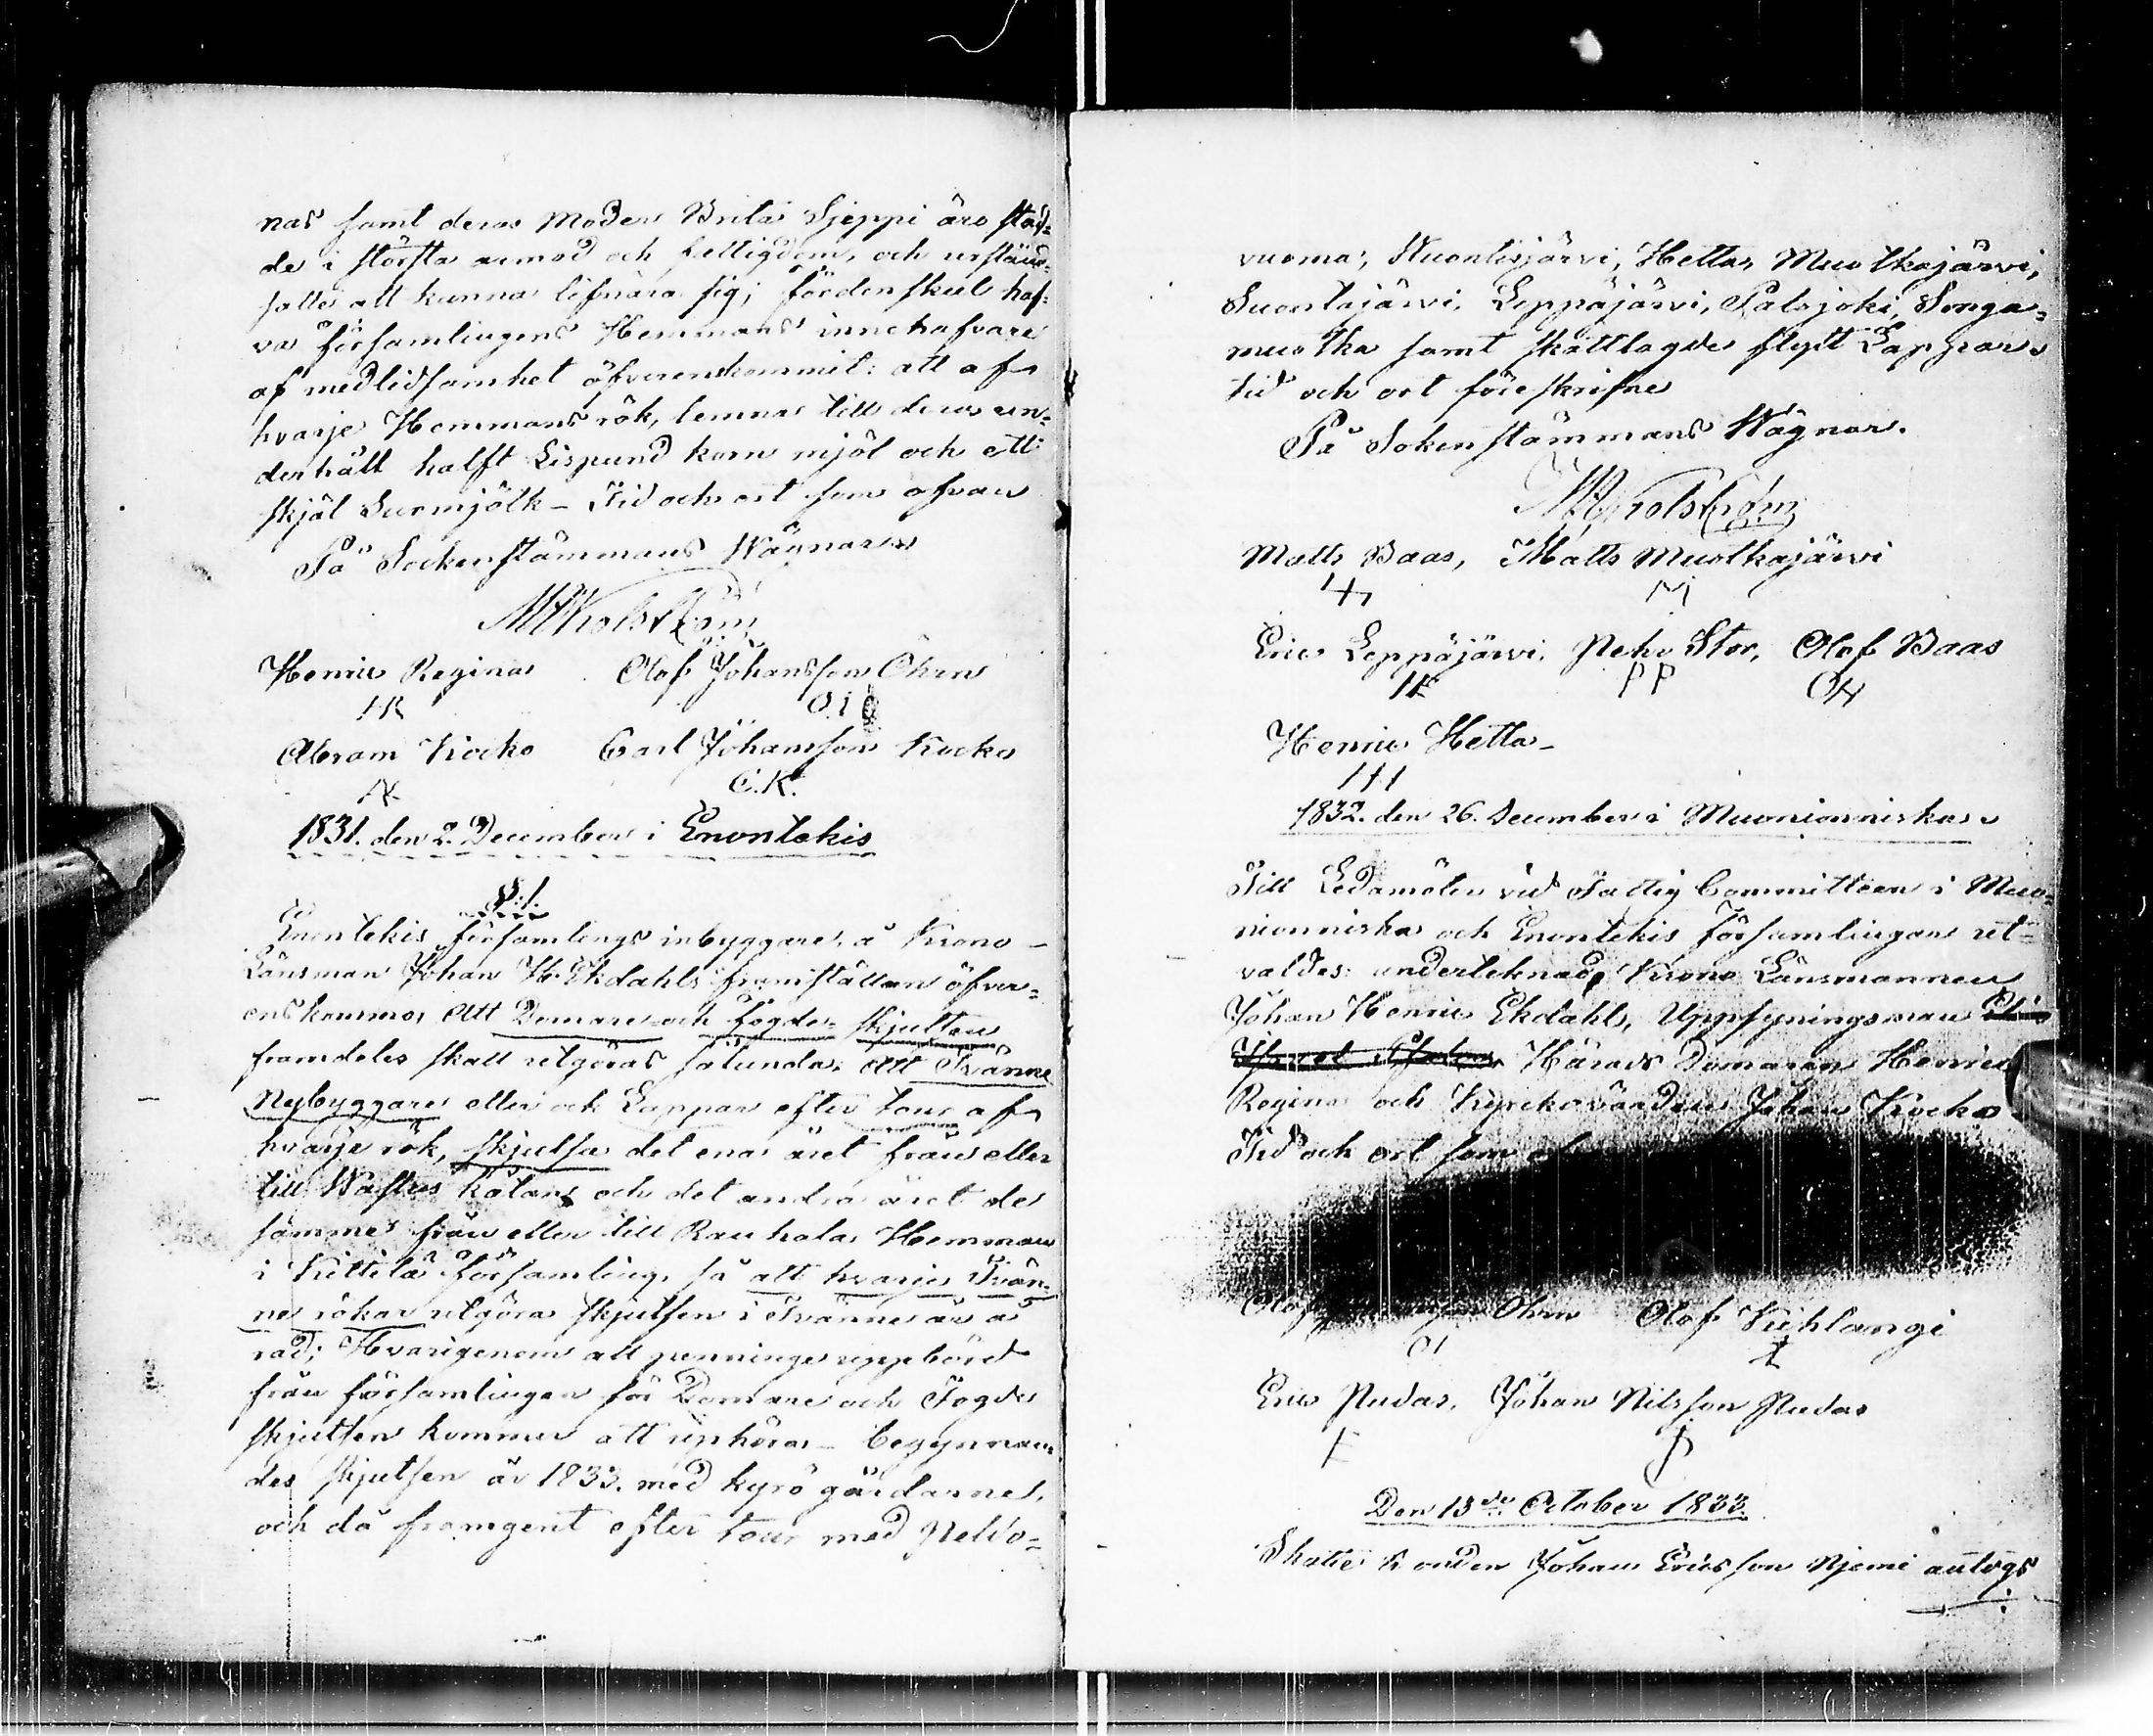 nas samt deras Moder Brita Sjeppi äro stad-
de i största armod och fattigdom, och urstånd-
satte att kunna lifnära sig; fördenskul haf-
va församlingens Hemmans innehafvare
af medlidsamhet öfverenskommit: att af
hvarje Hemmans rök, lemna till deras un-
derhåll halft Lispund korn mjöl och ett
skjål Surmjölk - Tid och ort som ofvan
På Sockenstämmans Wägnar
Henric Regina Olof Johansson Öhrn
HR O.I.Ö
Abram Kocko Carl Johansson Kocko
C.K.
1831. den 2. December i Enontekis
§.1.
Enontekis församlings inbyggare, å Krono-
Länsman Johan H. Ekdahls framställan öfver-
enskommo, Att Domare- och fogde- skjutsen
framdeles skall utgöras sålunda: Att Tvänne
Nybyggare eller och Lappar efter tour af
hvarje rök, skjutsa det ena året från eller
till Wasktus kåtan, och det andra året de
samme från eller till Rauhala Hemman
i Kittilä församling, så att hvarje Tvän-
ne rökar utgöra skjutsen i Tvänne år å
rad; Hvarigenom all penninge uppbörd
från församlingen för Domare och Fogde
skjutsen kommer att uphöra - begynnan-
des skjutsen år 1833. med kyrö gårdarne,
och då framgent efter tour med Peldo-
vuoma, Nuontisjärvi, Hetta, Muotkajärvi,
Suontajärvi, Leppäjärvi, Palojoki, Songa-
muotka samt skattlagde flytt Lappars
tid och ort föreskrifne
På Sokenstämmans Wägnar.
Matts Baas, Matts Muotkajärvi
M
Eric Leppäjärvi, Pehr Stor, Olof Baas
PP
Henric Hetta -
HH
1832. den 26. December i Muonionniska
Till Ledamöter vid Fattig Committeen i Muo-
nionniska och Enontekis Församlingar ut-
valdes: undertecknad, Krono Länsmannen
Johan Henric Ekdahl, Uppsyningsman
Härads Domaren Henric
Regina och Kyrckovärden Johan Kocko
Tid och ort som
Olof Öhrn Olof Kiehlangi
OI
Eric Rudas, Johan Nilsson Rudas
Den 13de October 1833.
Skatte bonden Johan Ericsson Njemi antogs